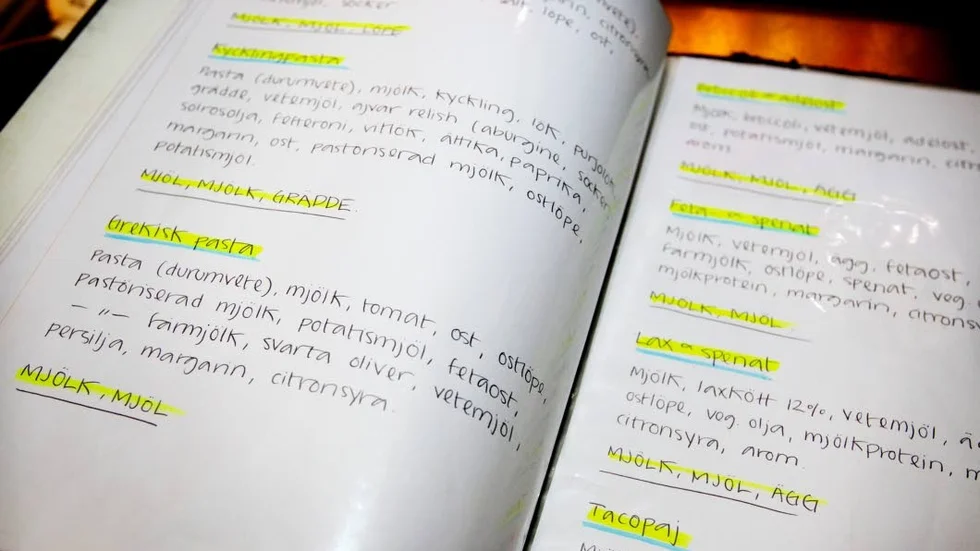 socker
lope, ost,
MJÖLK, MJÖL,
Kycklingpasta
Pasta (durumvete), mjölk, kyckling, lök, purjolök,
grädde, vetemjöl, ajvar relish (aburgine, socker,
solrosolja, fefferoni, vitlök, ättika, paprika,
margarin, ost, pastöriserad mjölk, ostlöpe,
potatismjöl.
MJÖL, MJÖLK, GRÄDDE.
Grekisk pasta
Pasta (durumvete), mjölk, tomat, ost, ostlöpe,
pastöniserad mjölk, potatismjöl, fetaost,
– " – fårmjölk, svarta oliver, vetemjöl,
persilja, margarin, citronsyra.
MJÖLK, MJÖL
ädelost
Mjölk, broccoli, vetemjöl, ädelost,
ost, potatismjöl, margarin, citr
arom
MJÖLK, MJÖL, ÄGG
Feta- o spenat
Mjölk, vetemjöl, ägg, fetaost,
fårmjölk, ostlöpe, spenat, veg.
mjölkprotein, margarin, citronsy
MJÖLK, MJÖL
Lax o spenat
Mjölk, laxkött 12%, vetemjöl, ä
ostlöpe, veg. olja, mjölkprotein, m
citronsyra, arom.
MJÖLK, MJÖL, ÄGG
Tacopaj